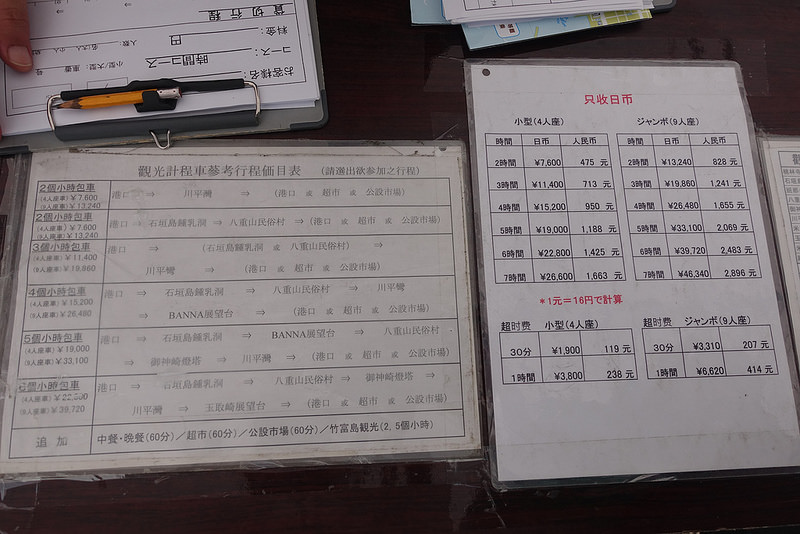 貸切行程
料金: 円
人数: 名(大人 小人
コース: 時間コース
小型/大型 車番 号
お客様名:
觀光計程車參考行程価目表 (請選出欲參加之行程)
2個小時包車
(4人座車) ¥ 7,600
(9人座車) ¥ 13,240
港口 ⇒ 川平灣 ⇒ (港口 或 超市 或 公設市場)
2個小時包車
(4人座車) ¥ 7,600
(9人座車) ¥ 13,240
港口 ⇒ 石垣島鍾乳洞 ⇒ 八重山民俗村 ⇒ (港口 或 超市 或 公設市場)
3個小時包車
(4人座車) ¥ 11,400
(9人座車) ¥ 19,860
港口 ⇒ (石垣島鍾乳洞 或 八重山民俗村) ⇒
川平灣 ⇒ (港口 或 超市 或 公設市場)
4個小時包車
(4人座車) ¥ 15,200
(9人座車) ¥ 26,480
港口 ⇒ 石垣島鍾乳洞 ⇒ 八重山民俗村 ⇒ 川平灣
⇒ BANNA展望台 ⇒ (港口 或 超市 或 公設市場)
5個小時包車
(4人座車) ¥ 19,000
(9人座車) ¥ 33,100
港口 ⇒ 石垣島鍾乳洞 ⇒ BANNA展望台 ⇒ 八重山民俗村
⇒ 御神崎燈塔 ⇒ 川平灣 ⇒ (港口 或 超市 或 公設市場)
6個小時包車
(4人座車) ¥ 22,800
(9人座車) ¥ 39,720
港口 ⇒ 石垣島鍾乳洞 ⇒ 八重山民俗村 ⇒ 御神崎燈塔 ⇒
川平灣 ⇒ 玉取崎展望台 ⇒ (港口 或 超市 或 公設市場)
追 加
中餐・晚餐(60分)／超市(60分)／公設市場(60分)／竹富島觀光(2,5個小時)
只收日币
小型(4人座)
時間 日币 人民币
2時間 ¥7,600 475 元
3時間 ¥11,400 713 元
4時間 ¥15,200 950 元
5時間 ¥19,000 1,188 元
6時間 ¥22,800 1,425 元
7時間 ¥26,600 1,663 元
ジャンボ(9人座)
時間 日币 人民币
2時間 ¥13,240 828 元
3時間 ¥19,860 1,241 元
4時間 ¥26,480 1,655 元
5時間 ¥33,100 2,069 元
6時間 ¥39,720 2,483 元
7時間 ¥46,340 2,896 元
*1元＝16円で計算
超时费 小型(4人座)
30分 ¥1,900 119 元
1時間 ¥3,800 238 元
超时费 ジャンボ(9人座)
30分 ¥3,310 207 元
1時間 ¥6,620 414 元